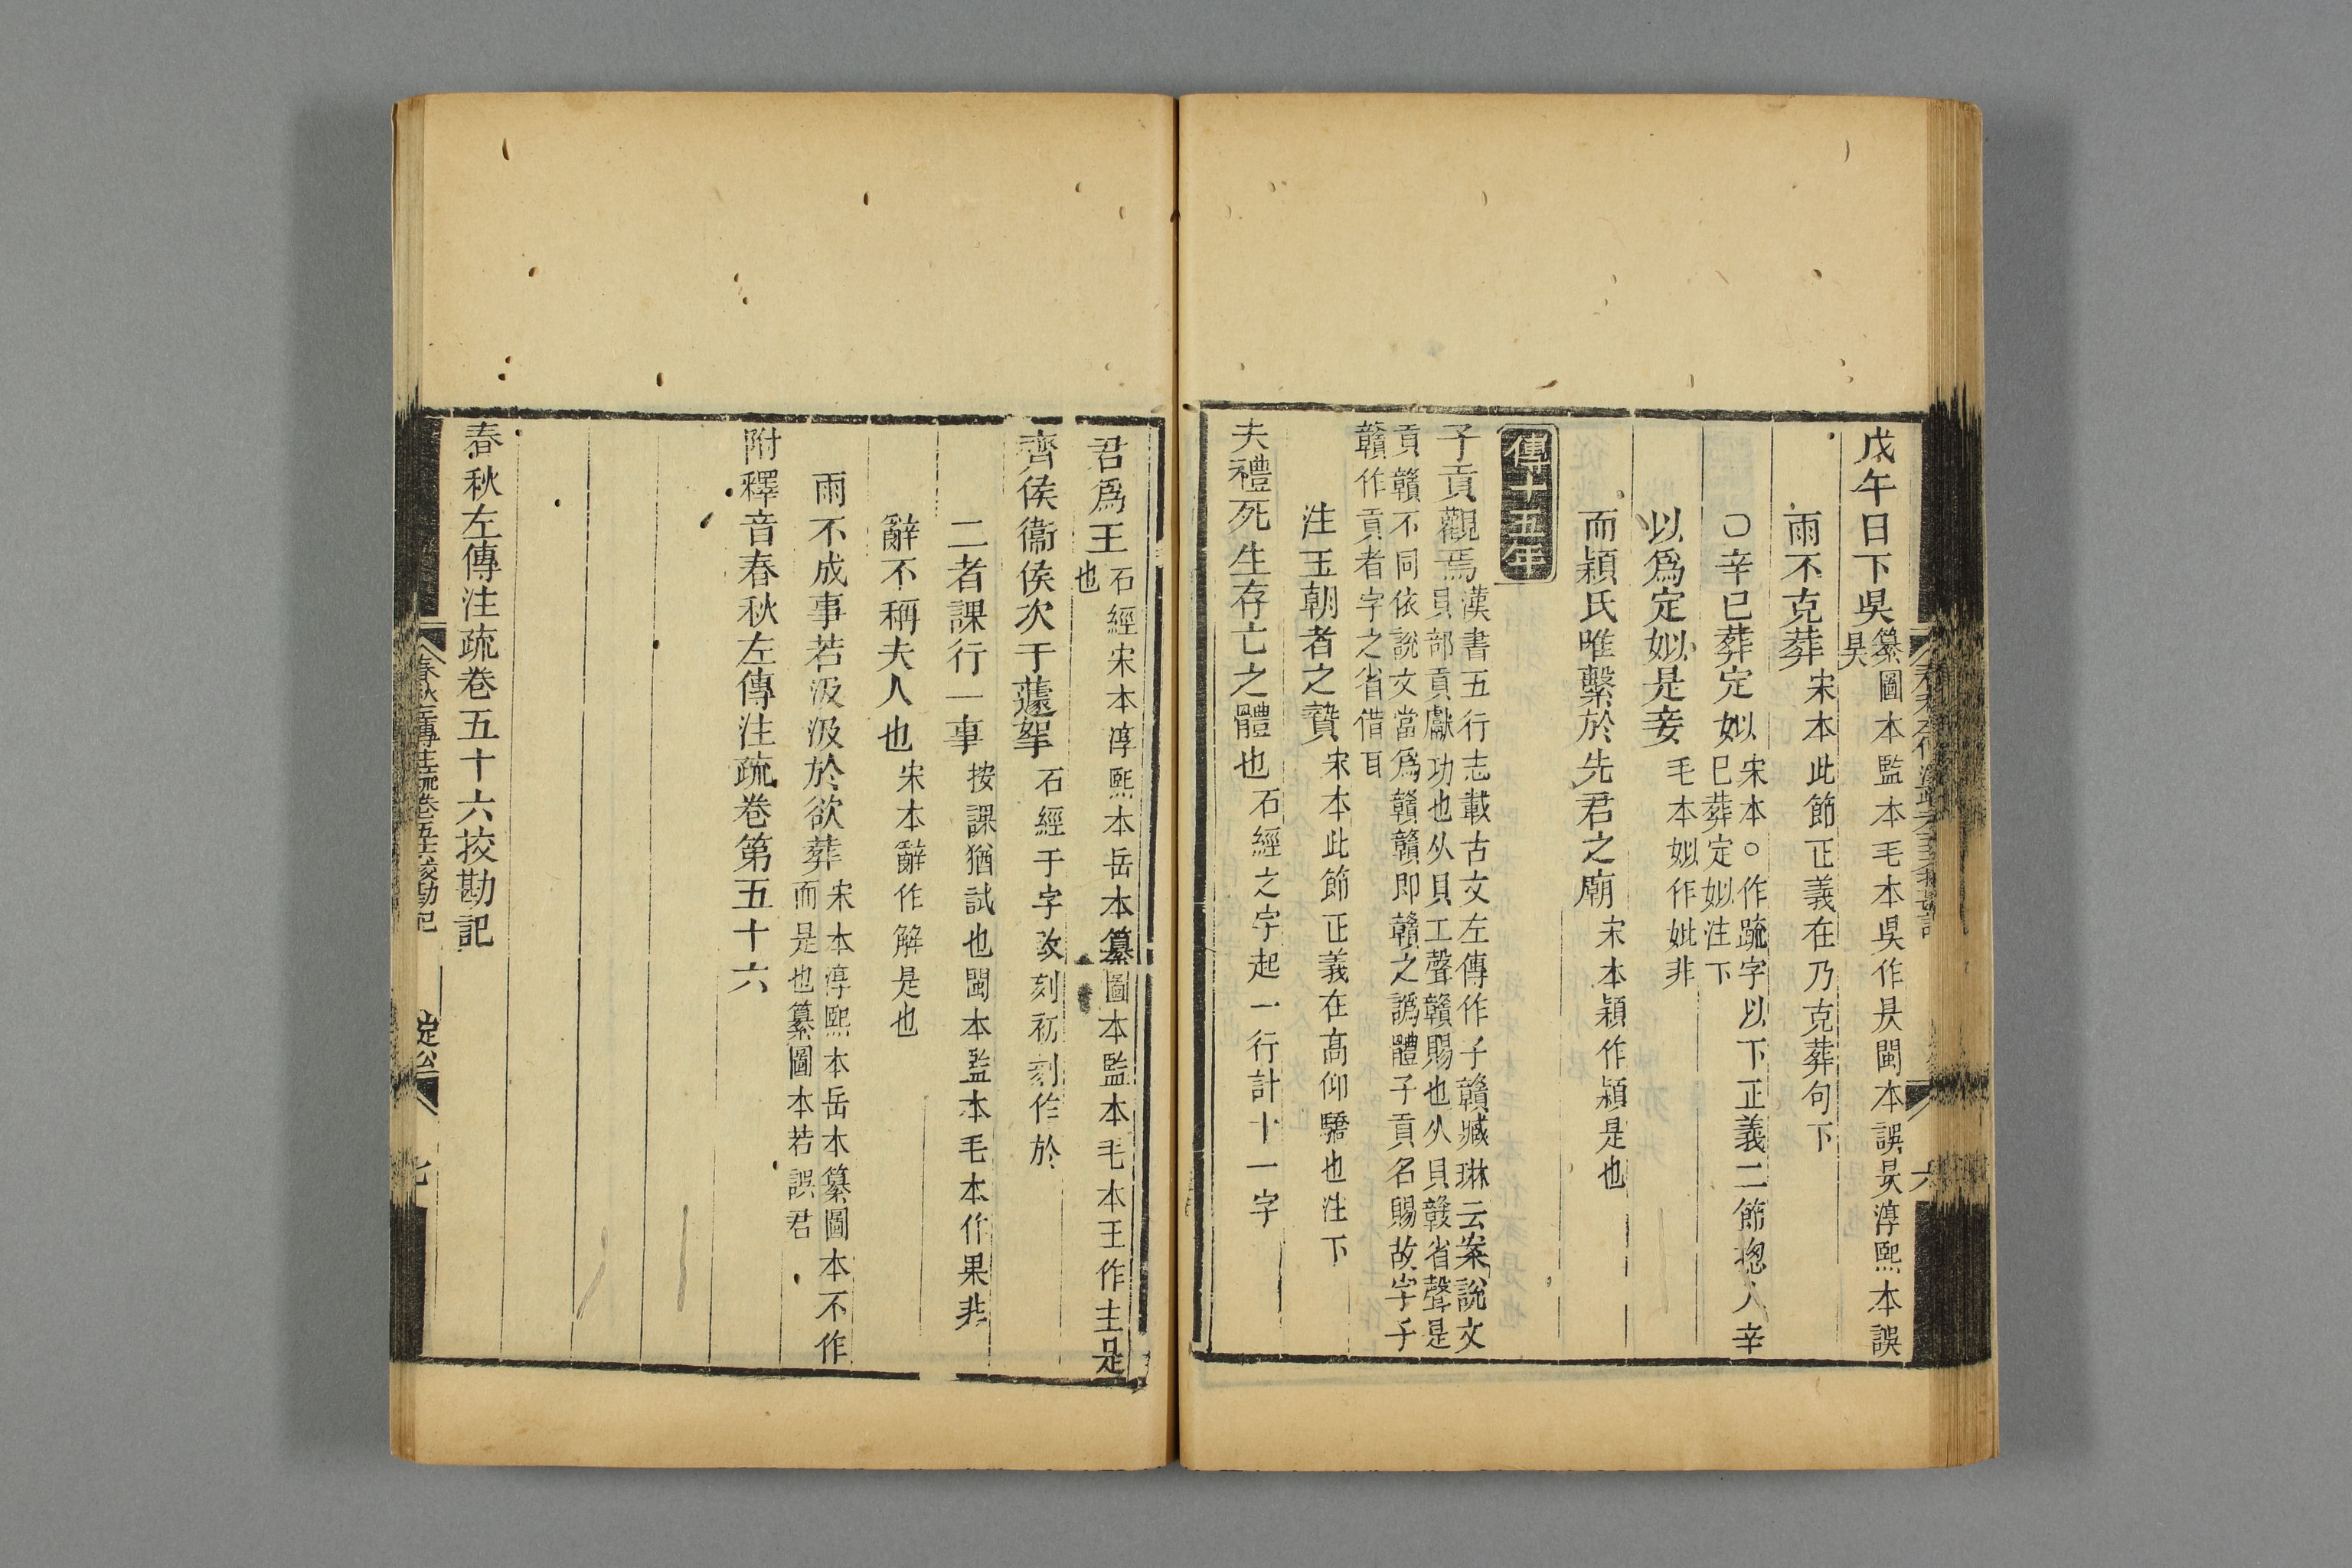 戊午日下昃纂圖本監本毛本昃作昗閩本誤昃淳熙本誤
昊
雨不克葬宋本此節正義在乃克葬句下
○辛巳葬定姒宋本○作疏字以下正義二節揔入辛
巳葬定姒注下
以爲定姒是妾毛本姒作妣非
而潁氏唯繫於先君之廟宋本頴作潁是也
傳十五年
子貢觀焉漢書五行志載古文左傳作子贛臧琳云案說文
貝部貢獻功也从貝工聲贛賜也从貝竷省聲是
貢贛不同依說文當爲贛贛即贛之譌體子貢名賜故字子
贛作貢者字之省借耳
注玉朝者之贄宋本此節正義在高仰驕也注下
夫禮死生存亡之體也石經之字起一行計十一字
君爲王石經宋本淳熙本岳本纂圖本監本毛本王作主是
也
齊侯衞侯次于蘧挐石經于字改刻初刻作於
二者課行一事按課猶試也閩本監本毛本作果非
辭不稱夫人也宋本辭作解是也
雨不成事若汲汲於欲葬宋本淳熙本岳本纂圖本不作
而是也纂圖本若誤君
附釋音春秋左傳注疏卷第五十六
春秋左傳注疏卷五十六挍勘記
春秋左傳注疏卷五十六挍勘記
定公
七
六